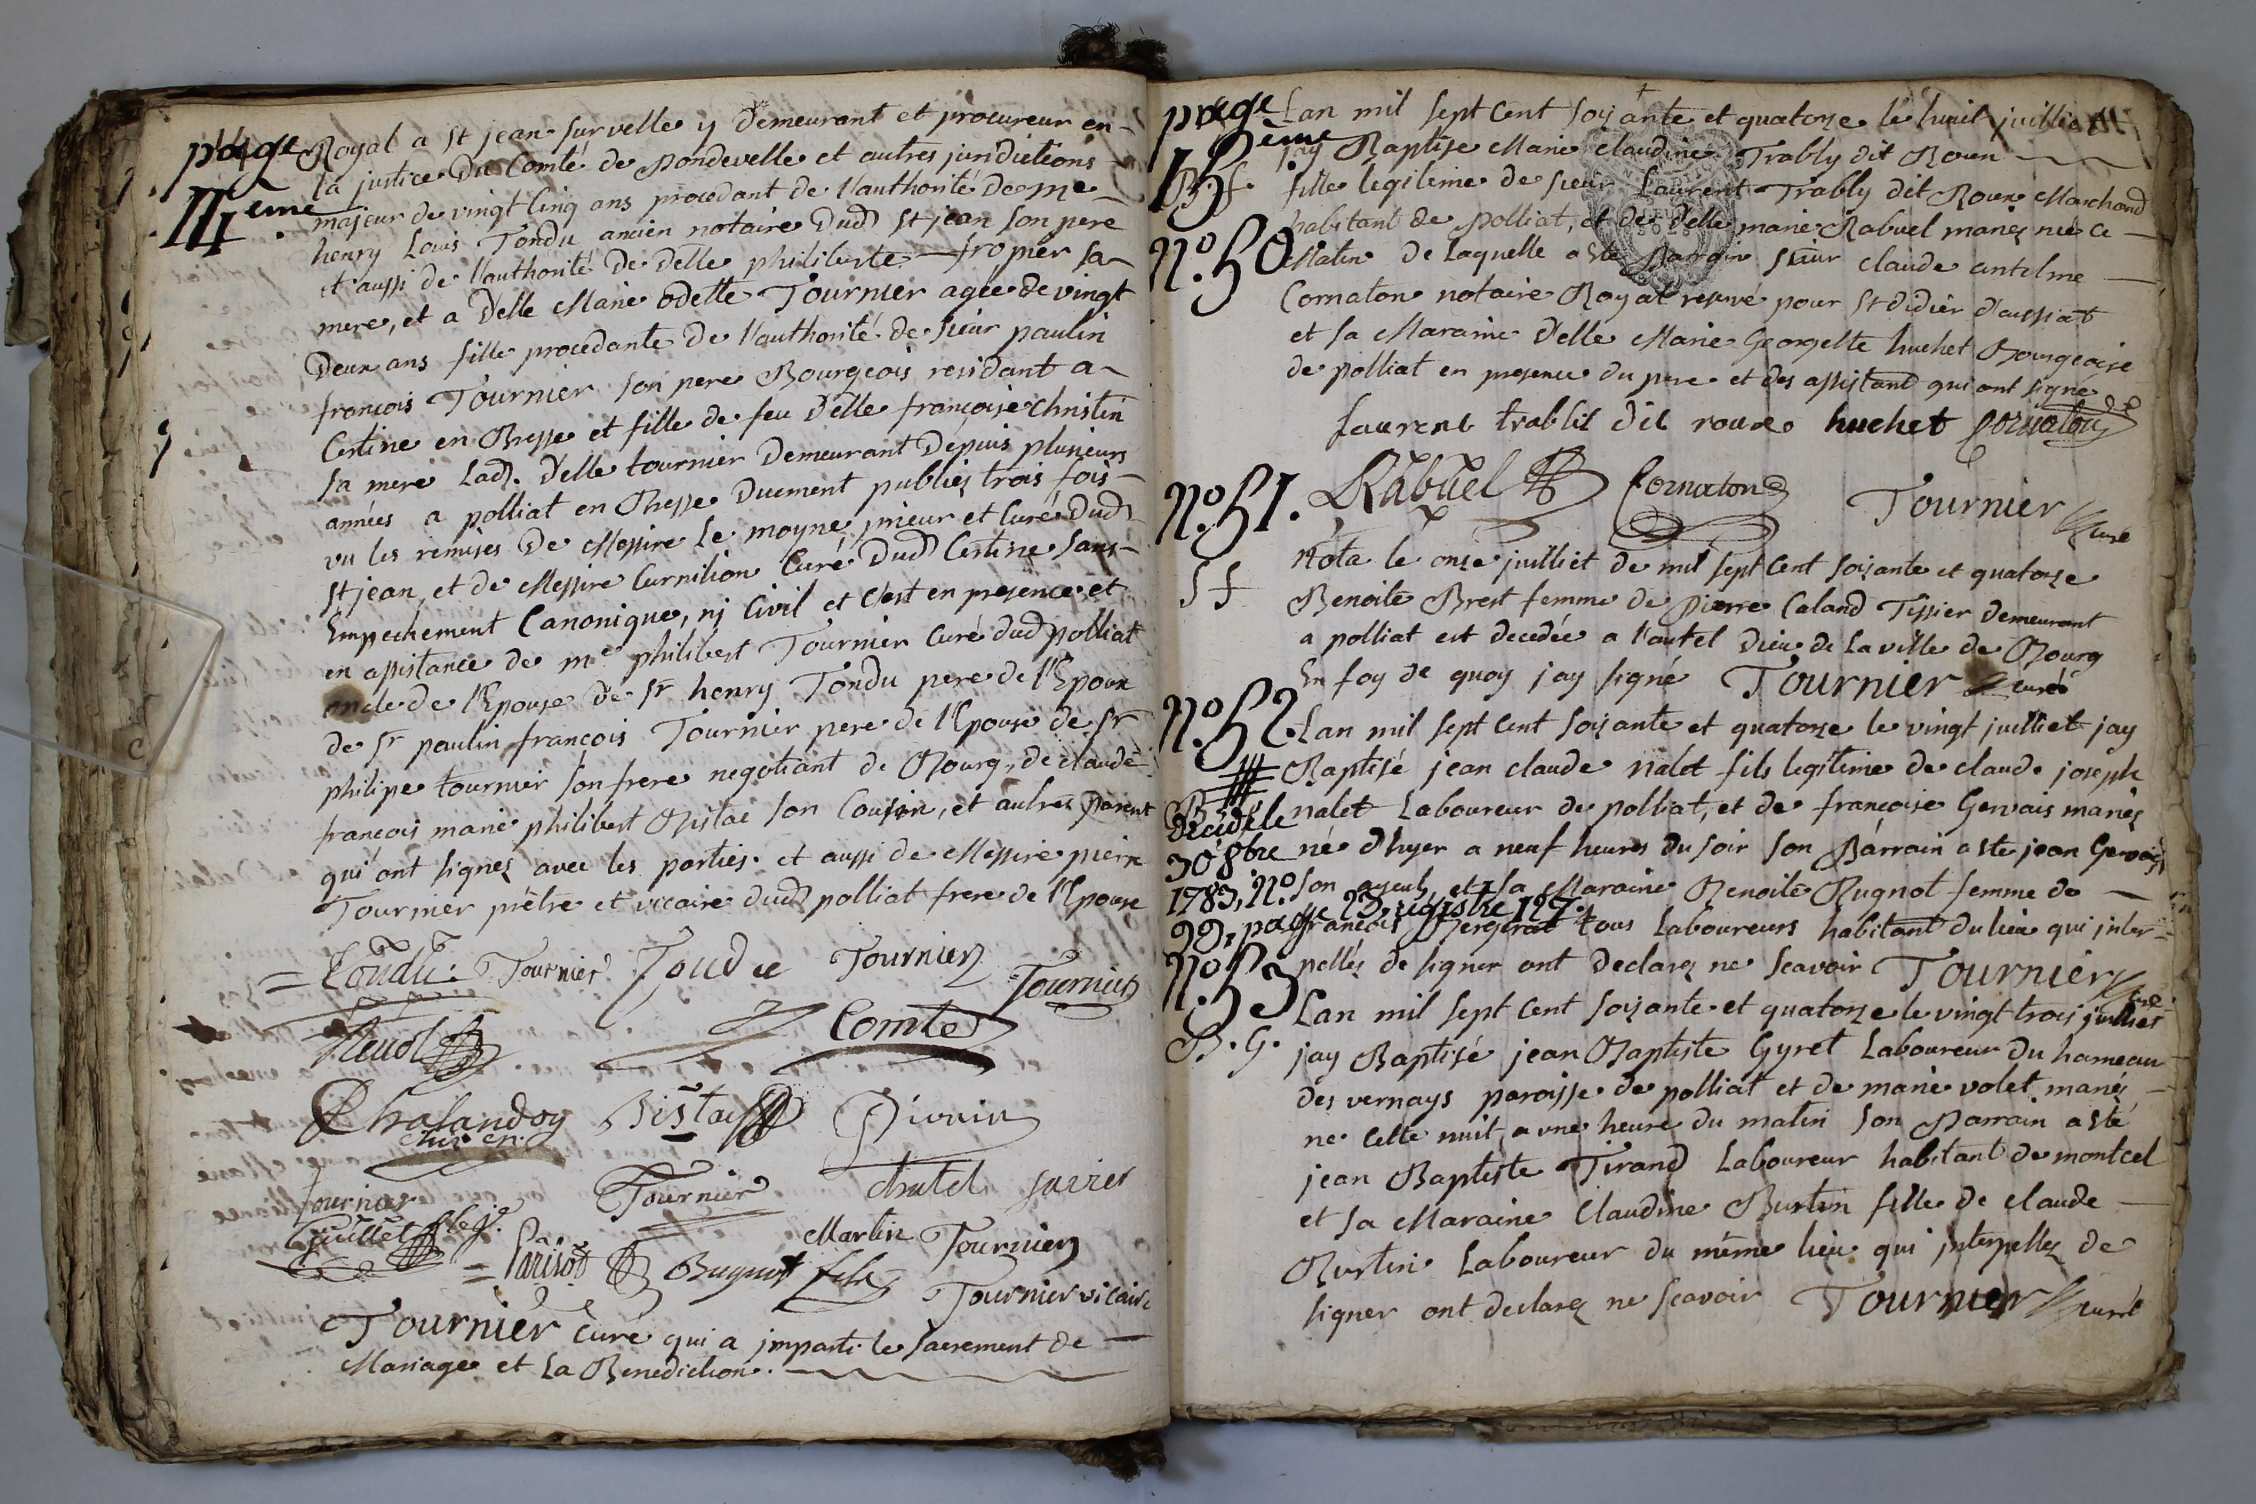 page
14 eme.
Royal a st jean survelle y demeurant et procureur en
la justice du Comté de pondevelle et autres jurisdictions
majeur de vingt cinq ans procedant de l'authorité de me
henry Louis Tondu ancien notaire dud st jean son pere
et aussi de l'authorité de delle philiberte fropier sa
mere, et a delle Marie odette Tournier agée de vingt
deux ans fille procedante de l'authorité de sieur paulin
françois Tournier son pere Bourgeois residant a
Certine en Bresse et fille de feu delle françoise christin
sa mere lad. delle tournier demeurant depuis plusieurs
années a polliat en Bresse duement publiez trois fois
vu les remises de Messire Le moyne prieur et Curé dud
st jean, et de Messire Curnilion Curé dud Certine sans
Empechement Canonique, nj Civil et c'est en presence et
en assistance de me philibert Tournier curé dud polliat
oncle de l'Epouse de sr henry Tondu pere de l'Epoux
de sr paulin françois Tournier pere de l'Epouse de sr
philipe tournier son frere negotiant de Bourg, de claude
françois marie philibert Bistac son Cousin, et autres parent
qui ont signez avec les parties. et aussi de Messire pierre
Tournier prêtre et vicaire dud polliat frere de l'Epouse
Tondu. Tournier Tondu Tournier Tournier
Comte
Chalandoy
Bistac Pivain
Tournier Tournier chatel savier
Guillet Parisot Bugnot fils Martin Tournier
Tournier vicaire
Tournier curé qui a imparti le sacrement de
Mariage et La Benediction.
page
15 ème
Lan mil sept cent soixante et quatorze le huit juilliet
jay Baptisé Marie claudine Trably dit Roux
fille legitime de sieur Laurent Trably dit Roux Marchand
habitant de polliat, et de delle marie Rabuel mariez née ce
N.o 50
Matin de Laquelle a été Parrain sieur claude antelme
Cornaton notaire Royal reservé pour st didier d'aussiat
et sa Maraine delle Marie Georgette huchet Bourgeoise
de polliat en presence du pere et des assistant qui ont signé
Laurent trablit dit roux huchet Cornaton
Rabuel Cornaton Tournier curé
N.o 51.
Nota le onze juilliet de mil sept cent soixante et quatorze
Benoite Brest femme de pierre Caland Tissier demeurant
a polliat est decedée a l'autel dieu de la ville de Bourg
En foy de quoy jay signé Tournier curé
N.o 52.
Lan mil sept cent soixante et quatorze le vingt juilliet jay
Baptisé jean claude nalet fils legitime de claude joseph
nalet Laboureur de polliat, et de françoise Gervais mariez
né d'hyer a neuf heures du soir son Parrain a ste jean Gervais
son ayeul, et sa Maraine Benoite Bugnot femme de
françois Bergerat tous Laboureurs habitant du lieu qui inter-
pellez de signer ont declarez ne scavoir Tournier curé
Décidé le
30 8bre
1783, N.o
99, page 23, registre 127.
N.o 53
B. G.
Lan mil sept cent soixante et quatorze le vingt trois juilliet
jay Baptisé jean Baptiste Gyret Laboureur du hameau
des vernays paroisse de polliat et de marie volet mariez
ne cette nuit a une heure du matin son Parrain a sté
jean Baptiste Tirand Laboureur habitant de montcel
et sa Maraine Claudine Burtin fille de claude
Burtin Laboureur du même lieu qui interpellez de
signer ont declarez ne scavoir Tournier curé